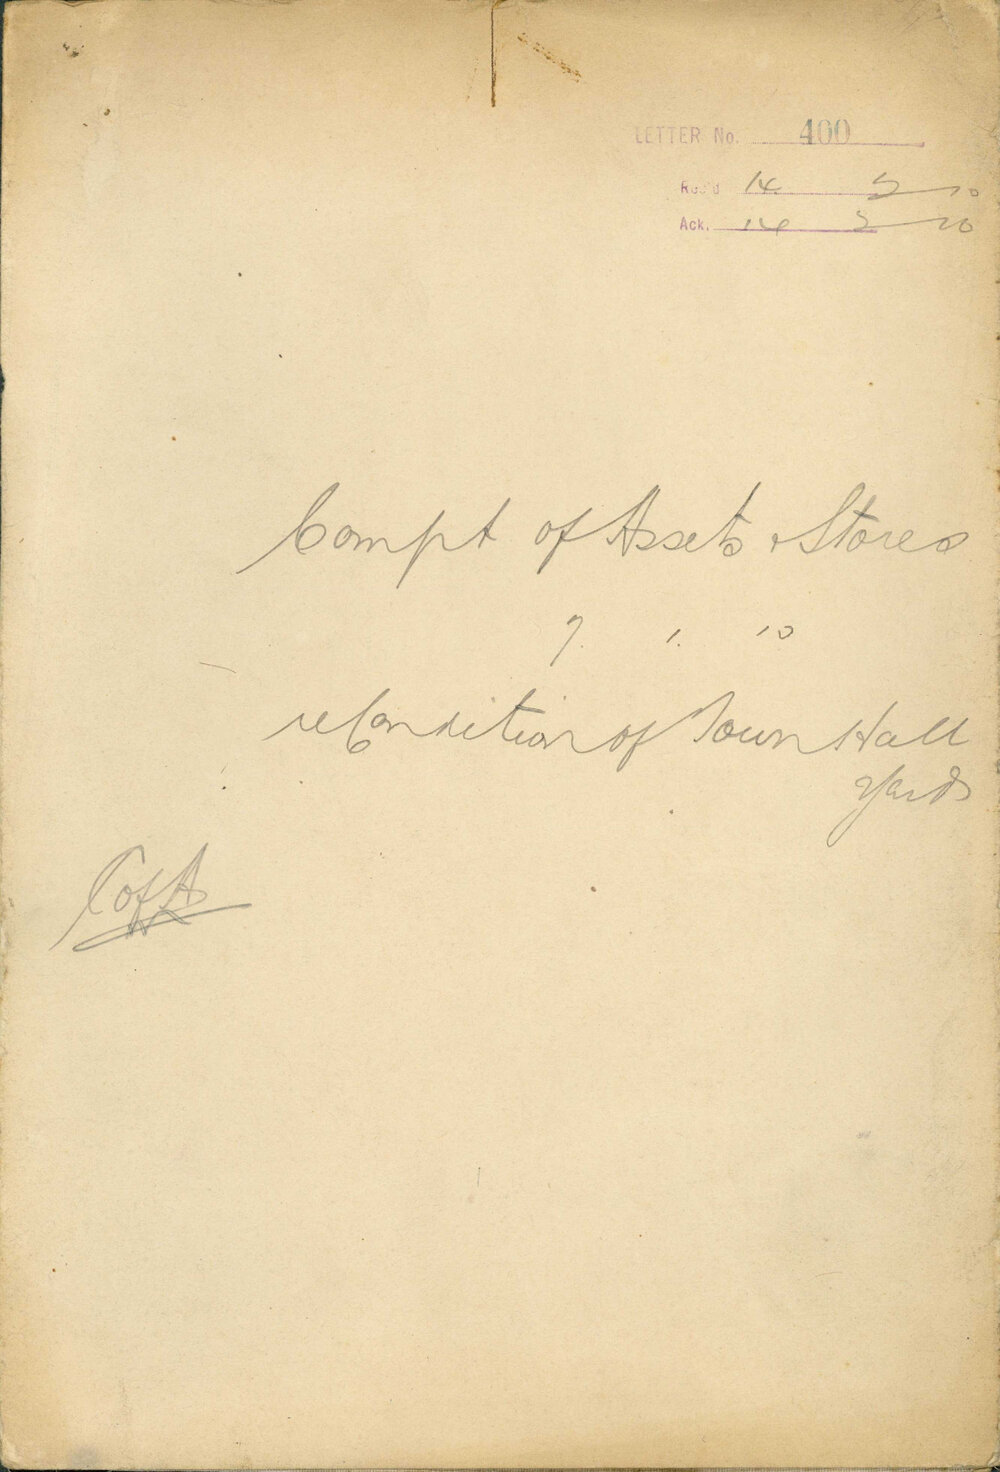 LETTER No. 400
Rec'd 14 2 10
Ack. 14 2 10
Compt of Assets & Stores
7. 1. 10
re Condition of Town Hall
Yards
C of A